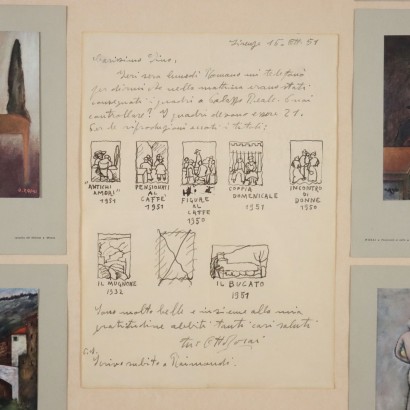 Firenze 16. VII. 51
Carissimo Vino,
Ieri sera lunedì Romano mi telefonò
per dirmi che nella mattina erano stati
consegnati i quadri a Palazzo Reale. Vuoi
controllare? I quadri devono essere 21.
Per le riproduzioni eccoti i titoli:
"ANTICHI AMORI" 1951
PENSIONATI AL CAFFE' 1951
FIGURE AL CAFFE 1950
COPPIA DOMENICALE 1951
INCONTRO DI DONNE 1950
IL MUGNONE 1932
IL BUCATO 1951
Sono molto belle e insieme alla mia
gratitudine abbiti tanti cari saluti
tuo Ott Rosai
Scrivo subito a Raimondi.